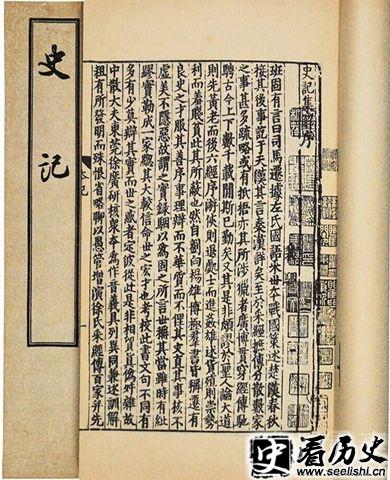 史記
史記集解序
班固有言曰司馬遷據左氏國語采世本戰國策述楚漢春秋
接其後事訖于天漢其言秦漢詳矣至於采經摭傳分散數家
之事甚多疏略或有抵捂亦其所涉獵者廣博貫穿經傳馳
騁古今上下數千載閒斯已勤矣又其是非頗謬於聖人論大道
則先黃老而後六經序游俠則退處士而進姦雄述貨殖則崇勢
利而羞賤貧此其所蔽也然自劉向揚雄博極羣書皆稱遷有
良史之才服其善序事理辯而不華質而不俚其文直其事核不
虛美不隱惡故謂之實錄駰以為固之所言世稱其當雖時有紕
繆實勒成一家總其大較信命世之宏才也考校此書文句不同有
多有少莫辯其實而世之惑者定彼從此是非相貿真偽舛雜故
中散大夫東莞徐廣研核衆本為作音義具列異同兼述訓解
粗有所發明而殊恨省略聊以愚管增演徐氏采經傳百家并先
史看历史
www.seelishi.cn